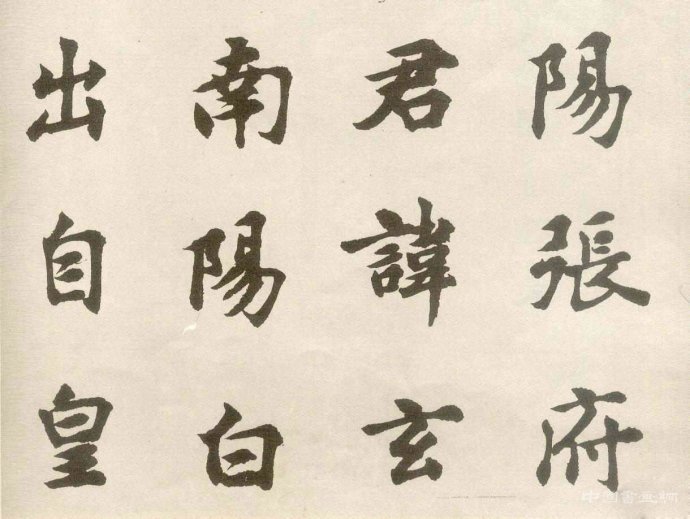 陽張府
君諱玄
南陽白
出自皇
中国書画網